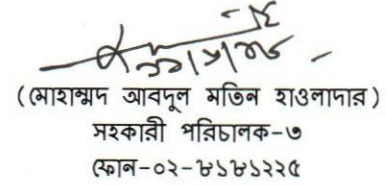 (মোহাম্মদ আবদুল মতিন হাওলাদার)
সহকারী পরিচালক-৭
ফোন-০২-৮১৮১২২৫